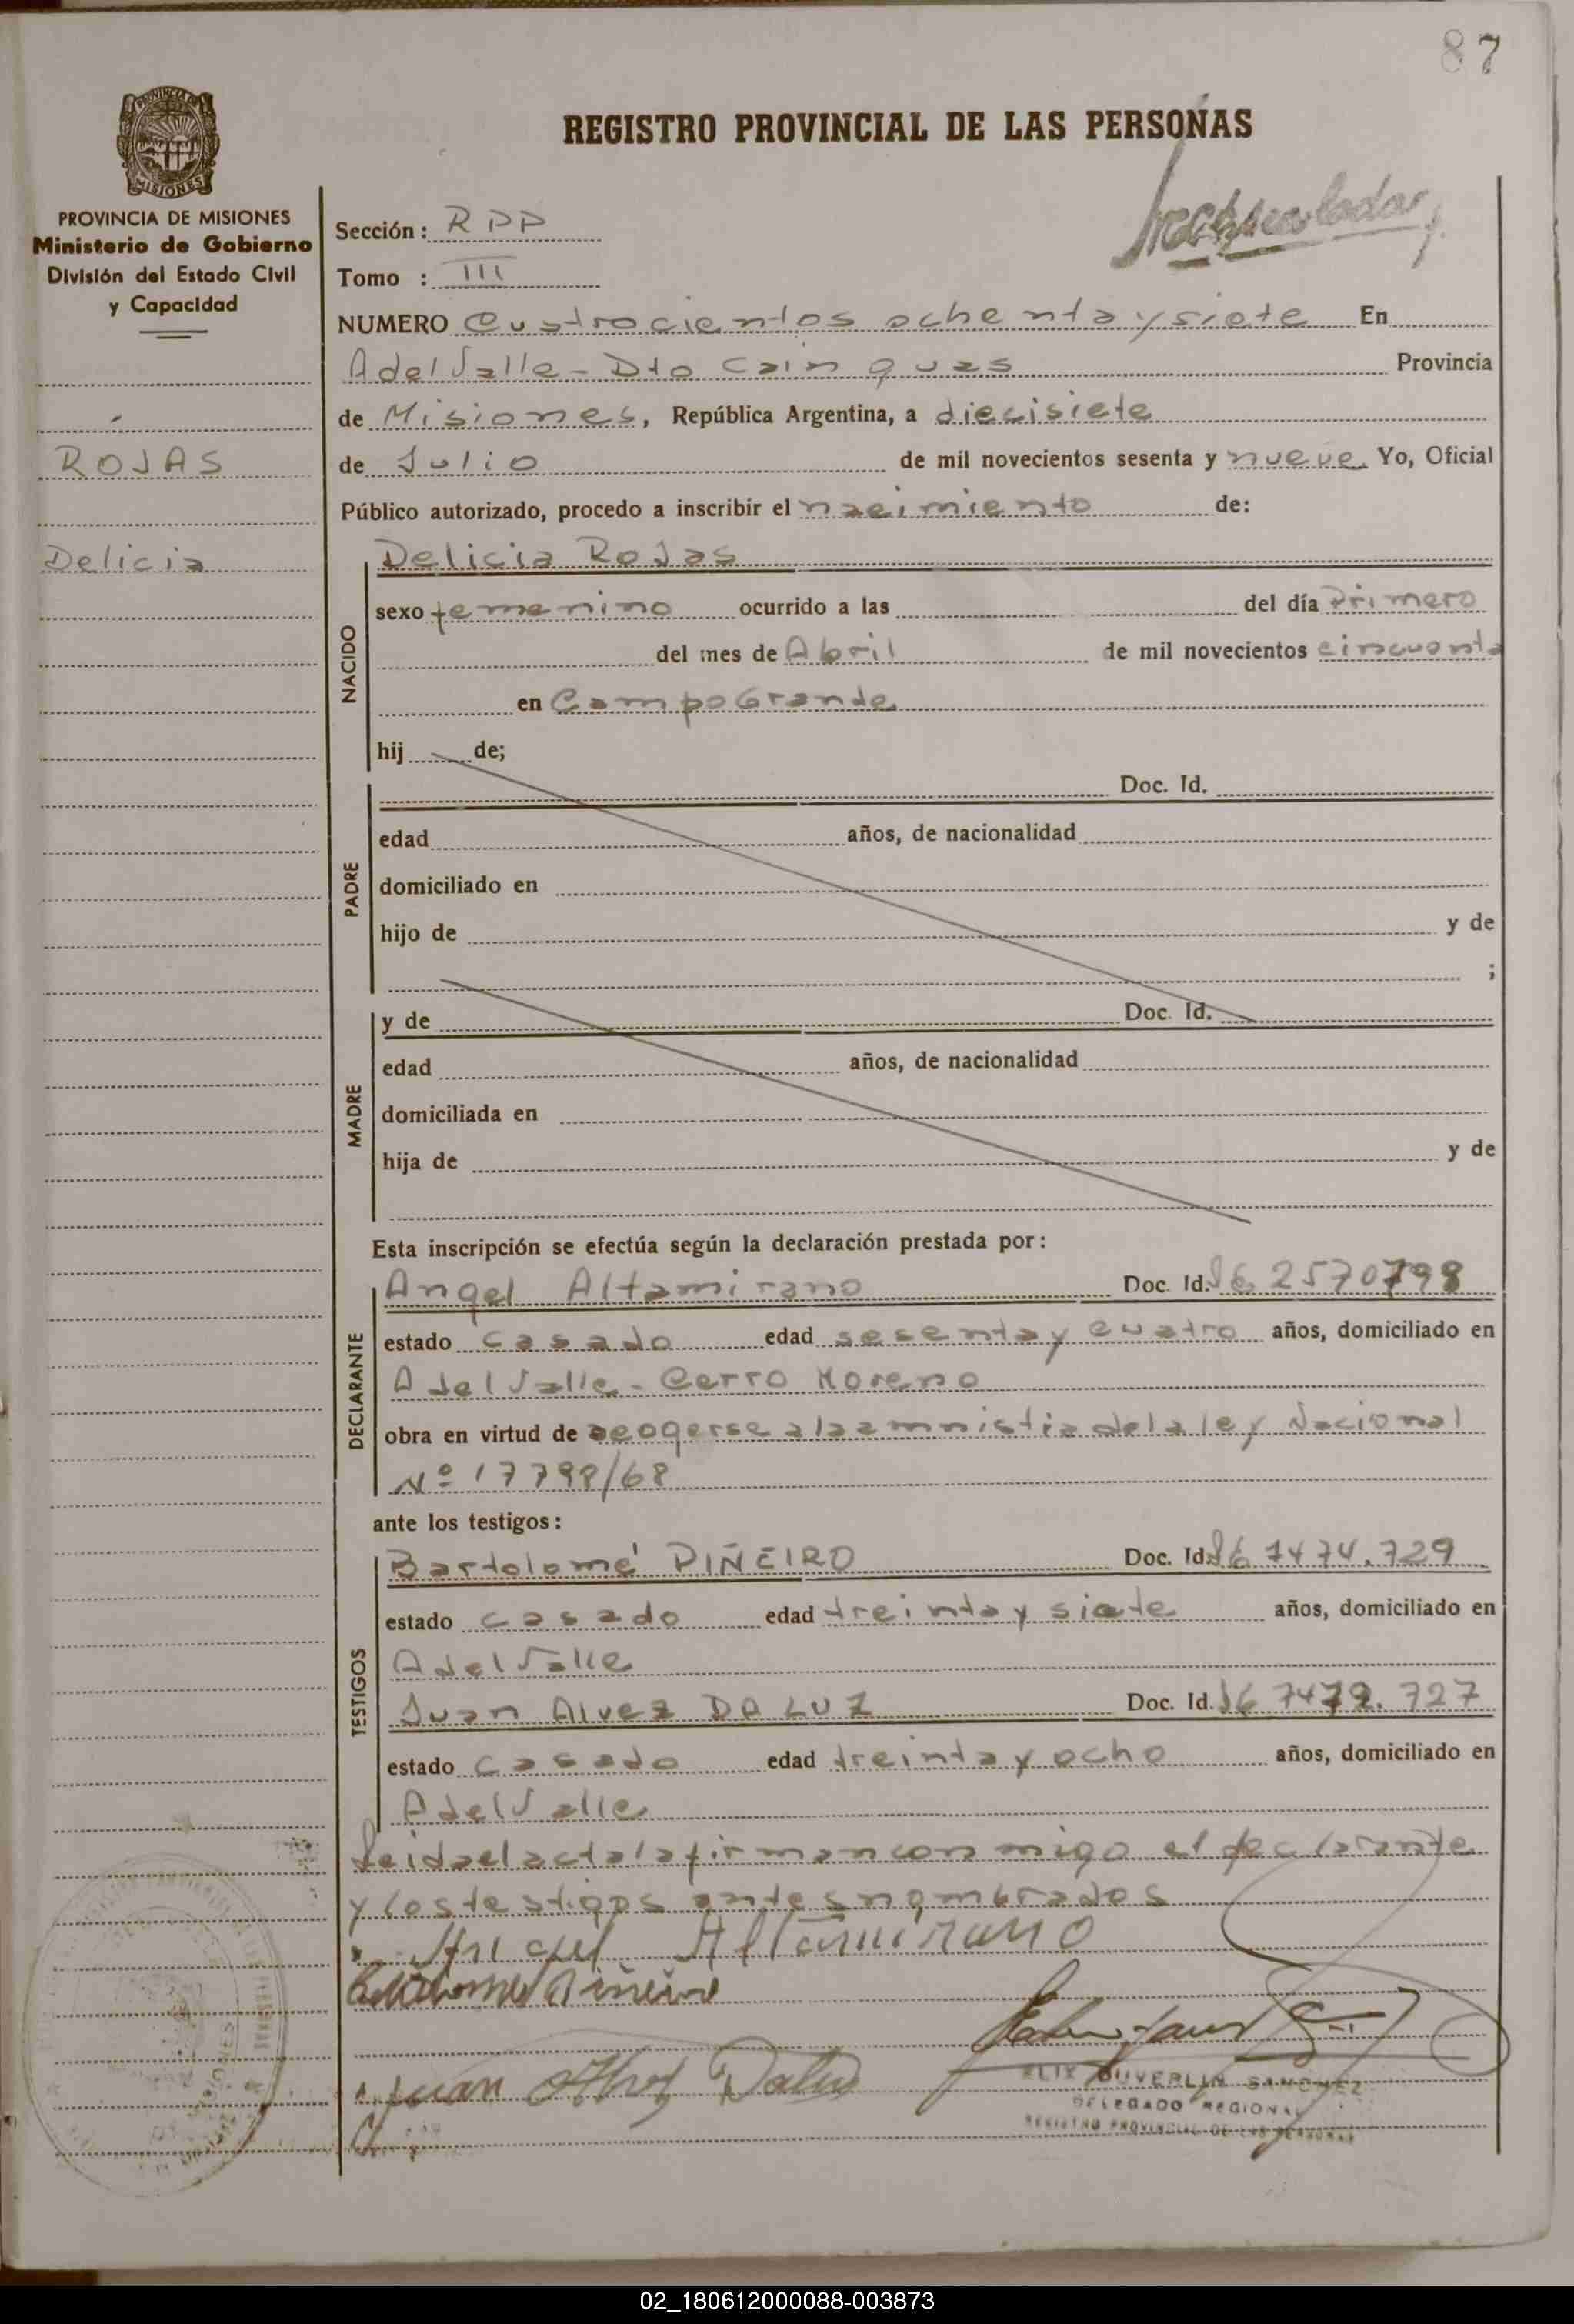 87
PROVINCIA DE MISIONES
Ministerio de Gobierno
División del Estado Civil
y Capacidad
REGISTRO PROVINCIAL DE LAS PERSONAS
Sección: RPP
Tomo : III
NUMERO Cuatrocientos ochenta y siete En
A del Valle - Dto Cainguas Provincia
de Misiones, República Argentina, a diecisiete
de Julio de mil novecientos sesenta y nueve. Yo, Oficial
Público autorizado, procedo a inscribir el nacimiento de:
ROJAS
Delicia
NACIDO
Delicia Rojas
sexo femenino ocurrido a las del día Primero
del mes de Abril de mil novecientos cincuenta
en Campo Grande
hij de;
PADRE
Doc. Id.
edad años, de nacionalidad
domiciliado en
hijo de y de
;
MADRE
y de Doc. Id.
edad años, de nacionalidad
domiciliada en
hija de y de
Esta inscripción se efectúa según la declaración prestada por:
DECLARANTE
Angel Altamirano Doc. Id. 2570798
estado casado edad sesenta y cuatro años, domiciliado en
A del Valle - Cerro Moreno
obra en virtud de acogerse a la amnistia de la ley Nacional
Nº 17798/68
ante los testigos:
TESTIGOS
Bartolomé PIÑEIRO Doc. Id. 7474.729
estado casado edad treinta y siete años, domiciliado en
A del Valle
Juan Alvez DA LUZ Doc. Id. 7479.727
estado casado edad treinta y ocho años, domiciliado en
A del Valle
Leida el acta la firman conmigo el declarante
y los testigos antes nombrados
Angel Altamirano
Bartolome Piñeiro
Juan Alvez Daluz
DUVERLIN SANCHEZ
DELEGADO REGIONAL
REGISTRO PROVINCIAL DE LAS PERSONAS
02_180612000088-003873